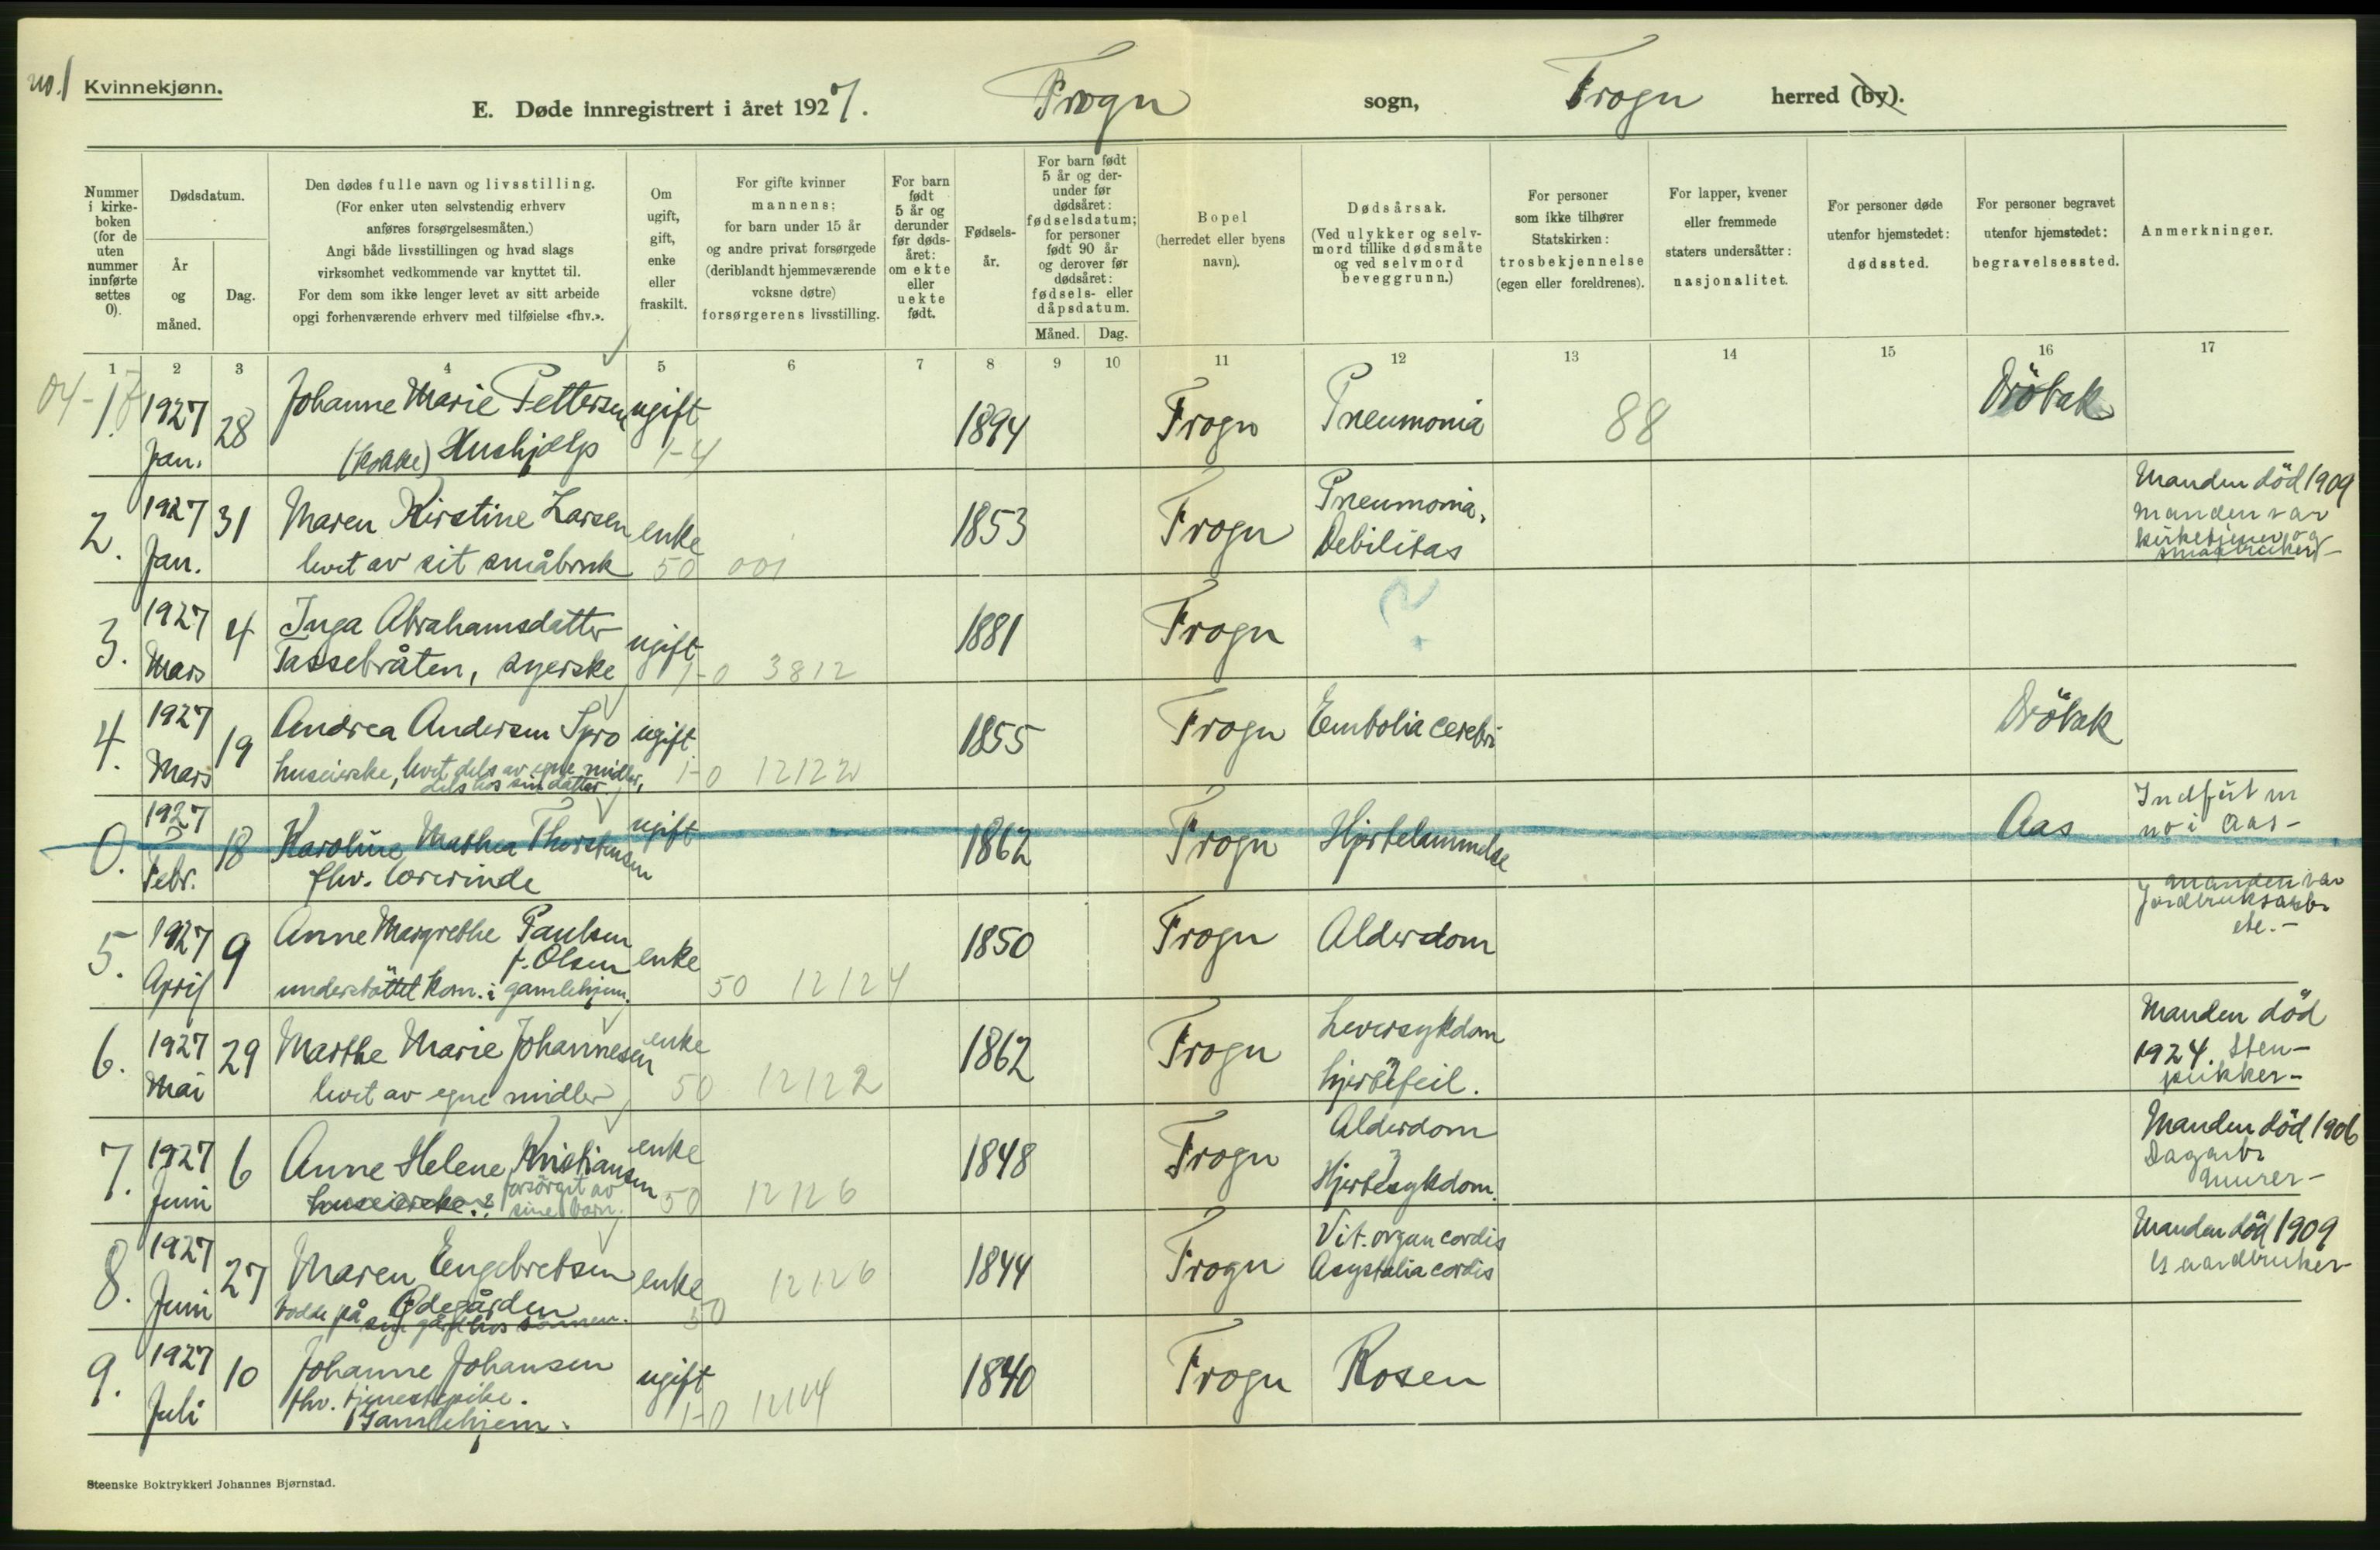 no.1 Kvinnekjønn.
E. Døde innregistrert i året 1927. Frogn sogn, Frogn herred (by).
Nummer i kirkeboken (for de uten nummer innførte settes 0).
Dødsdatum.
År og måned.
Dag.
Den dødes fulle navn og livsstilling.
(For enker uten selvstendig erhverv
anføres forsørgelsesmåten.)
Angi både livsstillingen og hvad slags
virksomhet vedkommende var knyttet til.
For dem som ikke lenger levet av sitt arbeide
opgi forhenværende erhverv med tilføielse «fhv.».
Om ugift, gift, enke eller fraskilt.
For gifte kvinner
mannens;
for barn under 15 år
og andre privat forsørgede
(deriblandt hjemmeværende
voksne døtre)
forsørgerens livsstilling.
For barn født 5 år og derunder før dødsåret: om ekte eller uekte født.
Fødselsår.
For barn født 5 år og derunder før dødsåret: fødselsdatum; for personer født 90 år og derover før dødsåret: fødsels- eller dåpsdatum.
Måned. Dag.
Bopel
(herredet eller byens
navn).
Dødsårsak.
(Ved ulykker og selvmord tillike dødsmåte og ved selvmord beveggrunn.)
For personer
som ikke tilhører
Statskirken:
trosbekjennelse
(egen eller foreldrenes).
For lapper, kvener
eller fremmede
staters undersåtter:
nasjonalitet.
For personer døde
utenfor hjemstedet:
dødssted.
For personer begravet
utenfor hjemstedet:
begravelsessted.
Anmerkninger.
1 2 3 4 5 6 7 8 9 10 11 12 13 14 15 16 17
1. 1927 Jan. 28 Johanne Marie Pettersen ugift 1894 Frogn Pneumonia 88 Dröbak
(kokke) Hushjælp 1-4
2. 1927 Jan. 31 Maren Kirstine Larsen enke 1853 Frogn Pneumonia, Debilitas Manden död 1909
levet av sit småbruk 50 001 manden var kirketjener og småbruker-
3. 1927 Mars 4 Inga Abrahamsdatter ugift 1881 Frogn ?
Tassebråten, syerske 1-0 3812
4. 1927 Mars 19 Andrea Andersen Spro ugift 1855 Frogn Embolia cerebri Dröbak
huseierske, levet dels av egne midler, 1-0 12122
dels hos sin datter
0. 1927 Febr. 18 Karoline Mathea Thorstensen ugift 1862 Frogn Hjertelammelse Aas
fhv. lærerinde no i Aas-
5. 1927 April 9 Anne Margrethe Paulsen enke 1850 Frogn Alderdom manden var
f. Olsen Jordbruksarb.
understöttet kom. i gamlehjem. 50 12124 ete.-
6. 1927 Mai 29 Marthe Marie Johannesen enke 1862 Frogn Leversykdom Manden död
levet av egne midler 50 12122 hjertefeil. 1924. Sten-
pukker-
7. 1927 Juni 6 Anne Helene Kristiansen enke 1848 Frogn Alderdom Manden död 1906
huseierske.? forsörget av sine barn. 50 12126 Hjertesykdom. Dagarb.
murer-
8. 1927 Juni 27 Maren Engebretsen enke 1844 Frogn Vit. organ cordis Manden död 1909
Ödegården 50 12126 Asystolia cordis Gaardbruker
bodde på sin gård hos sönnen.
9. 1927 Juli 10 Johanne Johansen ugift 1840 Frogn Rosen
fhv. tjenestepike. 1-0
Gamlehjem.
Steenske Boktrykkeri Johannes Bjørnstad.